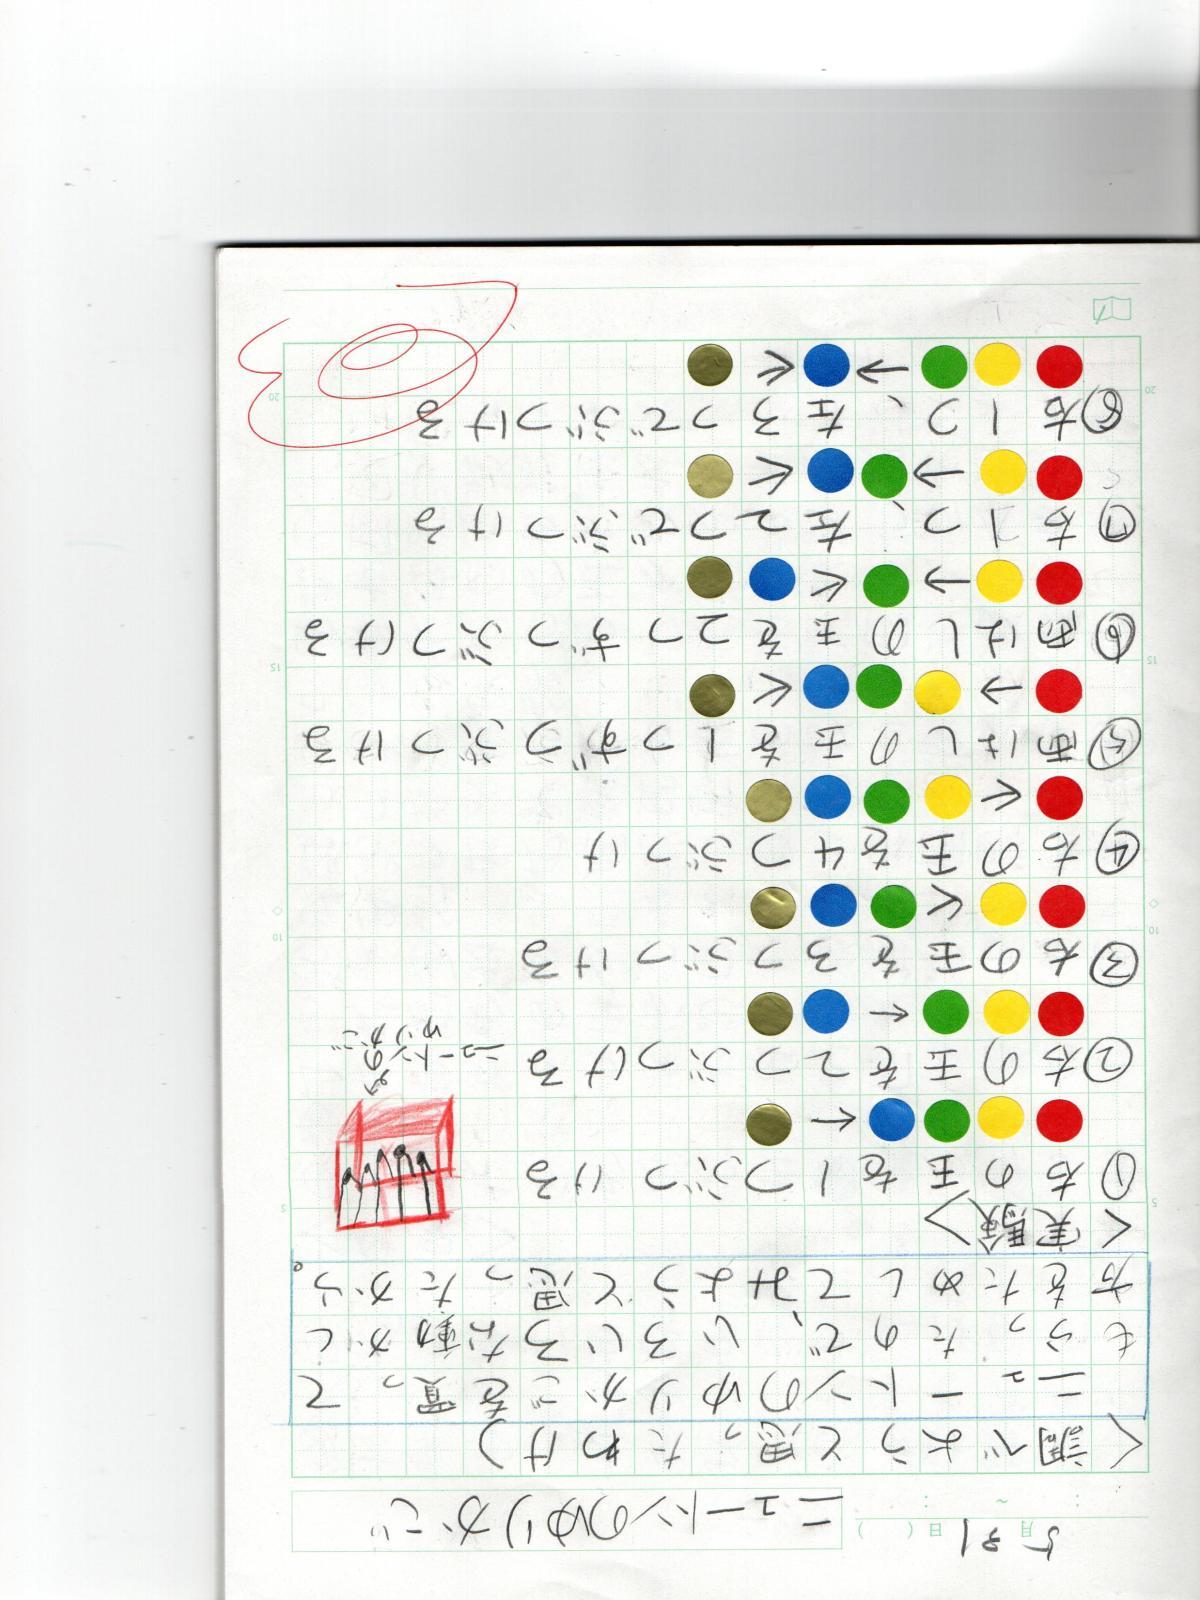 5月31日( )
ニュートンのゆりかご
<調べようと思ったわけ>
ニュートンのゆりかごを買って
もらったので、いろいろな動かし
方をためしてみようと思ったから。
<実験>
①右の玉を1つぶつける
②右の玉を2つぶつける
ニュートンの
ゆりかご
③右の玉を3つぶつける
④右の玉を4つぶつけ
⑤両はしの玉を1つずつぶつける
⑥両はしの玉を2つずつぶつける
⑦右1つ、左2つでぶつける
⑧右1つ、左3つでぶつける
5
10
15
20